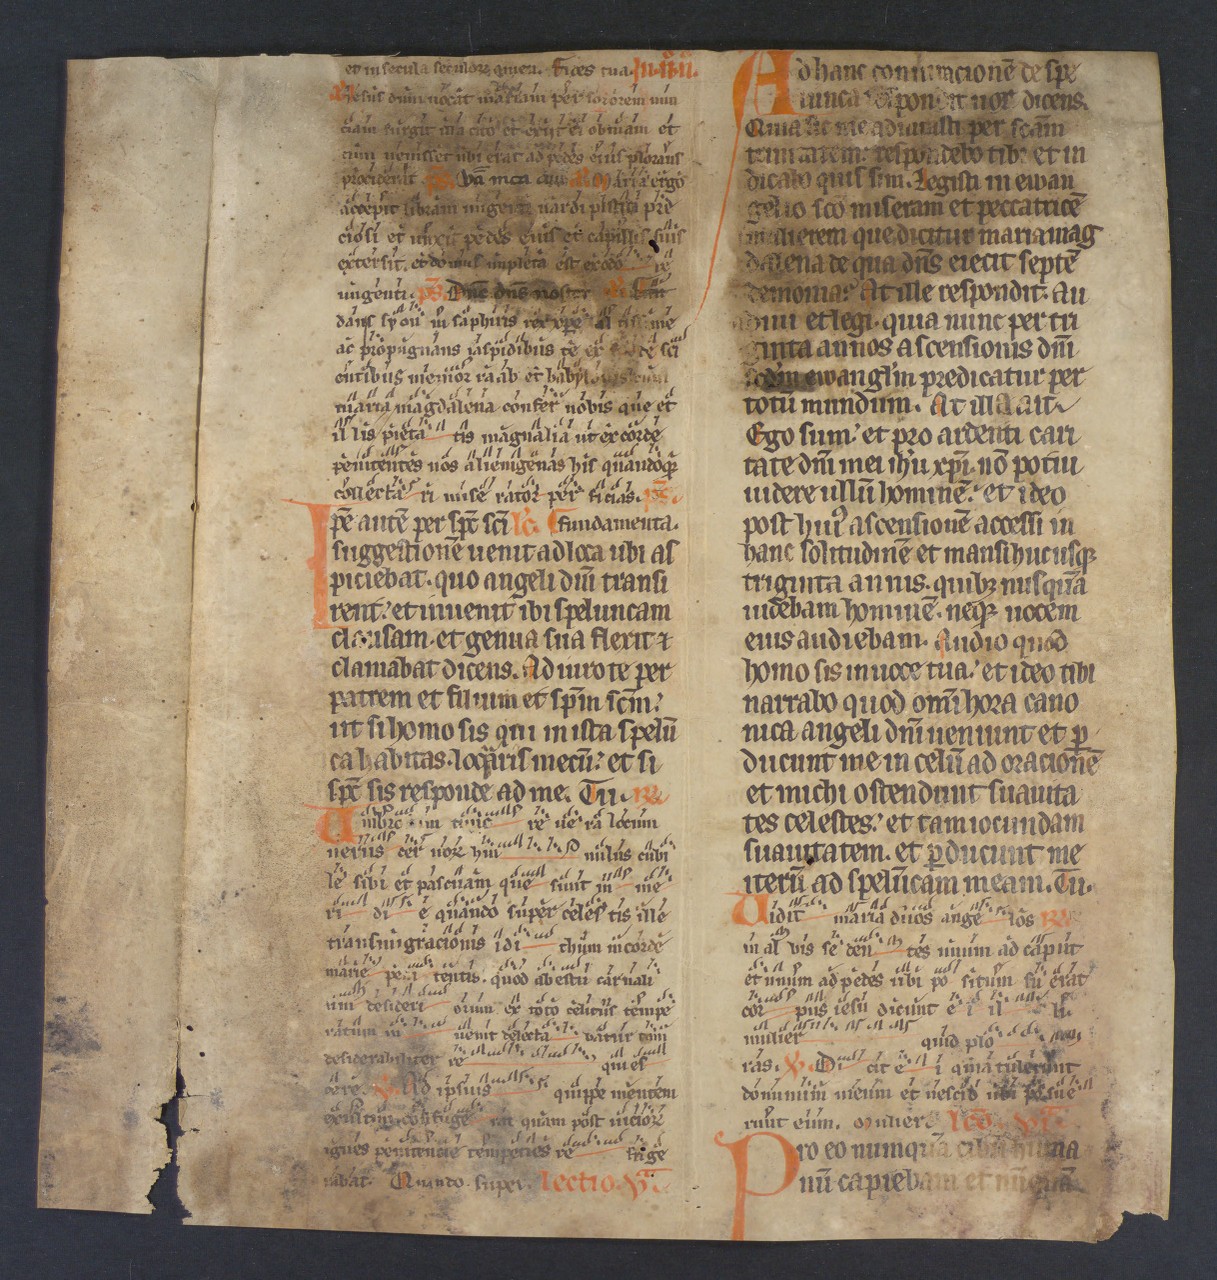 et in secula seculoꝝ amen. Fides tua. In .iii. n̄.
Iesus dum uocat mariam per sororem nun
ciam surgit illa cito et exiit ei obuiam et
cum uenisset ubi erat ad pedes eius plorans
procidenit Maria ergo
accepit libram ungenti nardi pistici pre
ciosi et unxit pedes eius et capillis suis
extersit. et domus impleta est ex odo re
ungenti. p̄s. Dn̄e dn̄s noster
dans syon in saphiris rex xp̄e
ac propugnans iaspidibus te
entibus memor raab et babylonis
maria magdalena confer nobis que et
il lis pieta tis magnalia ut ex corde
penitentes nos alienigenas his quandoqꝫ
collecta ri mise rator per ficias. p̄s.
Ipē autē per sp̄c sc̄i Fundamenta.
suggestionē uenit ad loca ubi as
piciebat. quo angeli dn̄i transi
rent. et inuenit ibi speluncam
clausam. et genua sua flexit ⁊
clamabat dicens. Adiuro te per
patrem et filium et sp̄m sc̄m.
ut si homo sis qui in ista spelū
ca habitas. loq̄ris mecū. et si
sp̄c sis responde ad me. Tu. R
um tunc re ue ra locum
uerius cer uoꝝ hui nulus cubi
le sibi et pascuam que sunt in me
ri di e quando super celes tis ille
transmigracionis idi thum in corde
marie peni tentis. quod ab estu carnali
um desideri orum ex toto celitus tempe
ratum in uenit delecta batur tam
desiderabiliter re qui es
cere. V. Ad ipsius si quippe mentem
rat quam post uicioꝝ
ignes penitencie temperies re frige
rabat. Quando super. Lectio. v.
Ad hanc coniuracionē de spe
lunca respondit uox dicens.
Quia sic me adiurasti per sc̄am
trinitatem. respondebo tibi et in
dicabo quis sim. Legisti in ewan
gelio sc̄o miseram et peccatricē
mulierem que dicitur maria mag
dalena de qua dn̄s eiecit septē
demonia. At ille respondit. Au
diui et legi. quia nunc per tri
ginta annos ascensionis dn̄i
scdm̄ ewangl̄m predicatur per
totū mundum. At illa ait.
Ego sum. et pro ardenti cari
tate dn̄i mei ih̄u xp̄i. nō potui
uidere ullū hominē. et ideo
post hui᷒ ascensionē accessi in
hanc solitudinē et mansi hucusqꝫ
triginta annis. quibꝫ nusquā
uidebam hominē. neqꝫ uocem
eius audiebam. Audio quod
homo sis in uoce tua. et ideo tibi
narrabo quod om̄i hora cano
nica angeli dn̄i ueniunt et ꝑ
ducunt me in celū ad oracionē
et michi ostendunt suauita
tes celestes. et tam iocundam
suauitatem. et ꝑducunt me
iterū ad spelūcam meam. Tu.
Uidit maria duos ange los R
in al bis se den tes unum ad caput
et unum ad pedes ubi po situm fu erat
cor pus iesu dicunt e i il li
mulier quid plo
ras. V. Di cit e i quia tulerunt
dominum meum et nescio ubi posue
runt eum. Mulier. Lc̄o. VI.
Pro eo numquā cibū huma
nū capiebam et nūquā